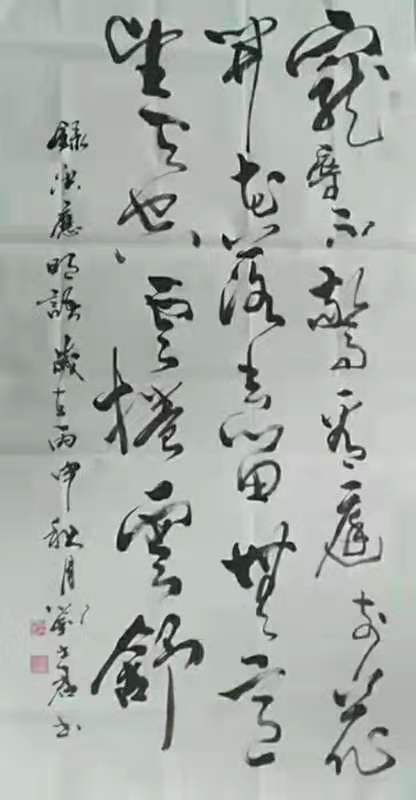 寵辱不驚看庭前花
開花落去留無意
望天雲捲雲舒
錄洪應明語歲在丙申秋月劉書